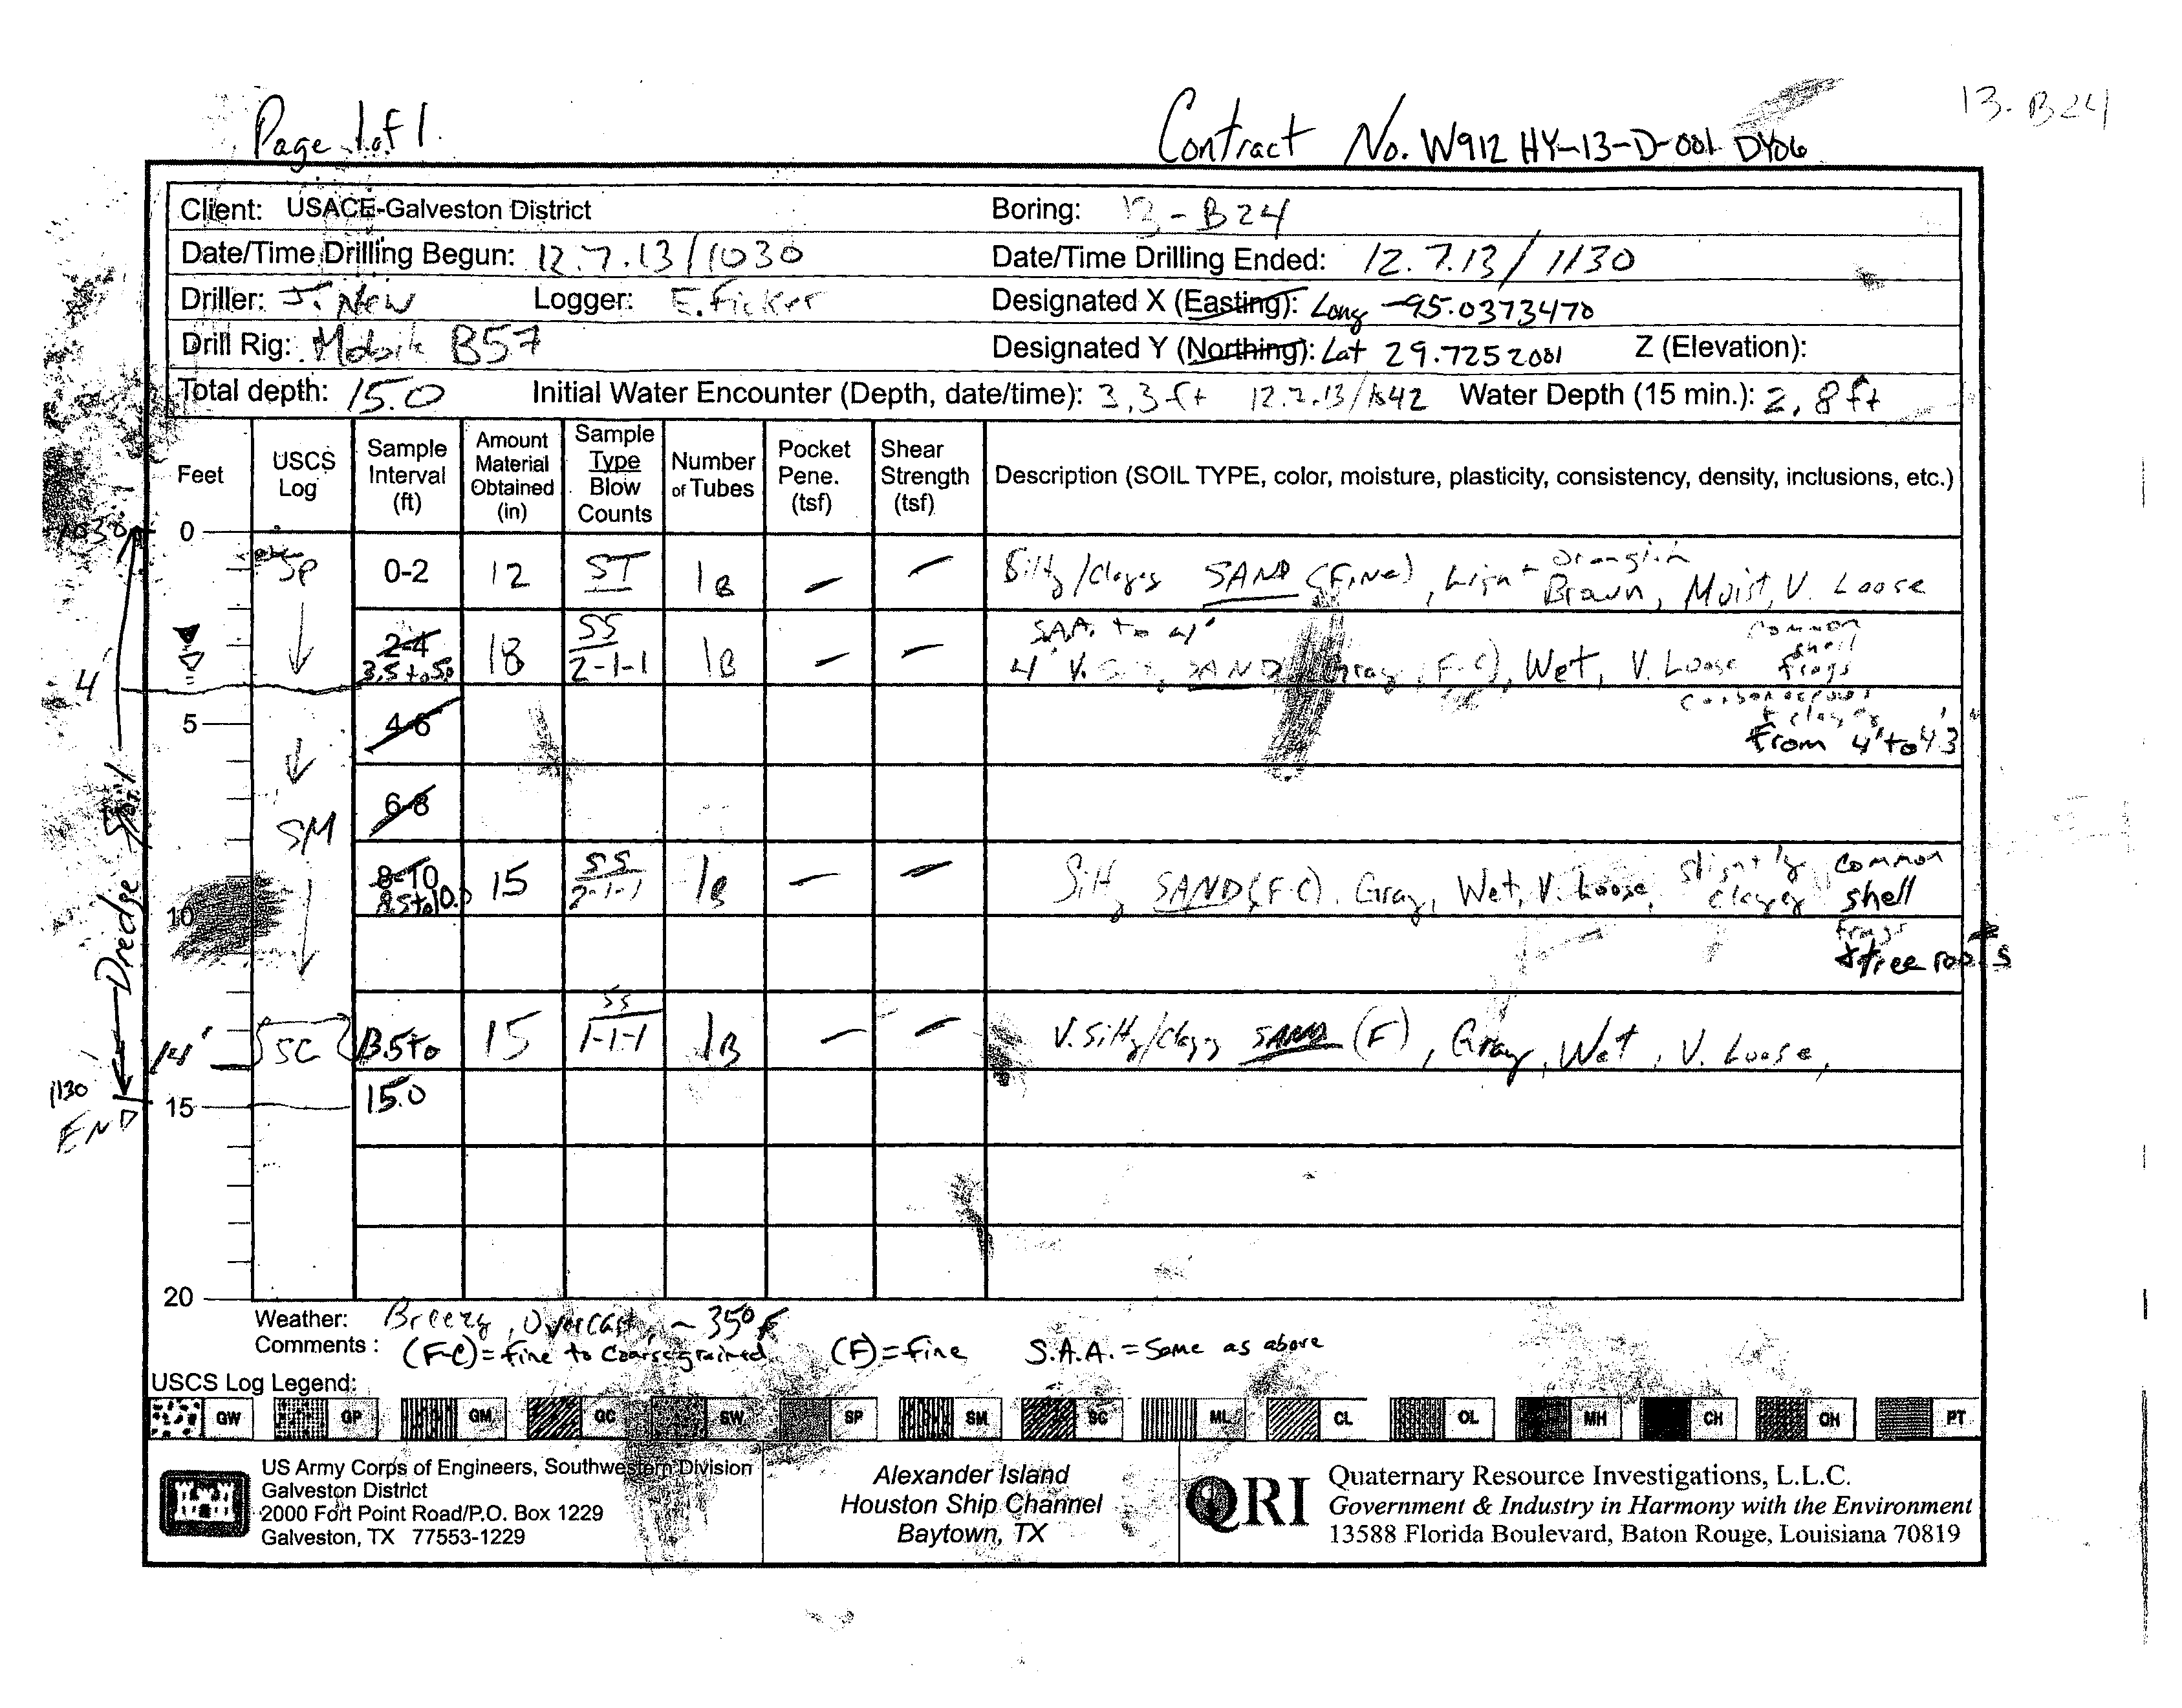 Page 1 of 1
Contract No. W912 HY-13-D-001 DY06
13-B24
Client: USACE-Galveston District
Boring: 13-B24
Date/Time Drilling Begun: 12.7.13/1030
Date/Time Drilling Ended: 12.7.13/1130
Driller: J. New Logger: E. Ficker
Designated X (Easting): Long -95.0373470
Drill Rig: Mobile B57
Designated Y (Northing): Lat 29.7252081 Z (Elevation):
Total depth: 15.0 Initial Water Encounter (Depth, date/time): 3.3 ft 12.7.13/1042 Water Depth (15 min.): 2.8 ft
Feet
USCS Log
Sample Interval (ft)
Amount Material Obtained (in)
Sample Type Blow Counts
Number of Tubes
Pocket Pene. (tsf)
Shear Strength (tsf)
Description (SOIL TYPE, color, moisture, plasticity, consistency, density, inclusions, etc.)
1030
0
SP 0-2 12 ST 1B - - Silty/clayey SAND (Fine), Light orangish Brown, Moist, V. Loose
2-4
3.5 to 5.0 18 SS 2-1-1 1B - - S.A.A. to 4'
4' V. Silty SAND Gray (F-C), Wet, V. Loose common shell frags
carbonaceous
& clayey
From 4' to 4.3'
4'
5
4-6
6-8
SM
8-10
8.5 to 10.0 15 SS 2-1-1 1B - - Silty SAND (F-C). Gray, Wet, V. Loose, slightly clayey common shell
frags
& tree roots
10
Dredge Spoil
14'
SC 13.5 to 15.0 15 SS 1-1-1 1B - - V. Silty/clayey SAND (F), Gray, Wet, V. Loose,
1130
END
15
20
Weather: Breezy, Overcast, ~35° F
Comments: (F-C) = fine to coarse grained (F) = fine S.A.A. = Same as above
USCS Log Legend:
GW GP GM GC SW SP SM SC ML CL OL MH CH OH PT
US Army Corps of Engineers, Southwestern Division
Galveston District
2000 Fort Point Road/P.O. Box 1229
Galveston, TX 77553-1229
Alexander Island
Houston Ship Channel
Baytown, TX
QRI
Quaternary Resource Investigations, L.L.C.
Government & Industry in Harmony with the Environment
13588 Florida Boulevard, Baton Rouge, Louisiana 70819